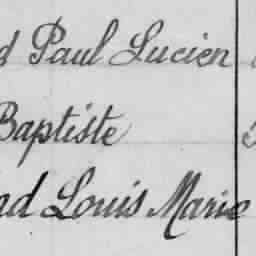 d Paul Lucien
Baptiste
ad Louis Marie